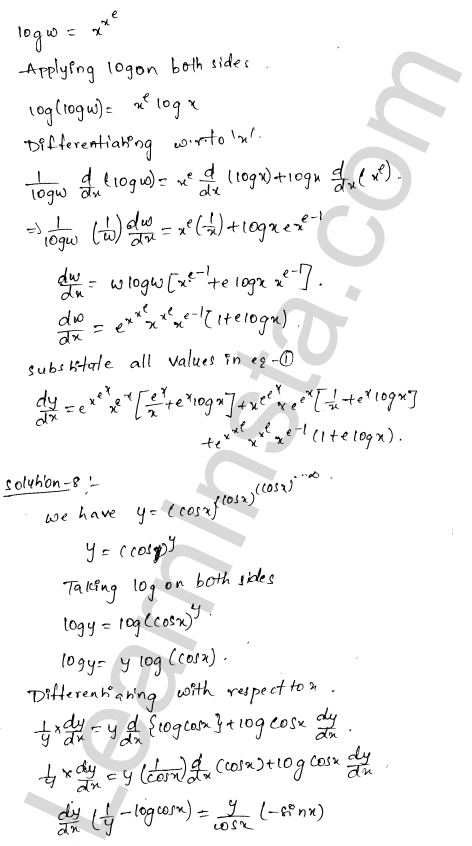 log w = x^{x^e}
Applying log on both sides.
log(log w) = x^e log x
Differentiating w.r.to 'x'.
1/log w d/dx (log w) = x^e d/dx (log x) + log x d/dx (x^e).
⇒ 1/log w (1/w) dw/dx = x^e (1/x) + log x e x^{e-1}
dw/dx = w log w [x^{e-1} + e log x x^{e-1}].
dw/dx = e^{x^{x^e}} x^{x^e} x^{e-1} (1 + e log x).
substitute all values in eq-①
dy/dx = e^{x^{e^x}} x^{e^x} [e^x/x + e^x log x] + x^{e^{e^x}} e^{e^x} [1/x + e^x log x]
+ e^{x^{x^e}} x^{x^e} x^{e-1} (1 + e log x).
Solution-8 :-
we have y = (cos x)^{(cos x)^{(cos x)^{...∞}}}.
y = (cos x)^y
Taking log on both sides
log y = log (cos x)^y.
log y = y log (cos x).
Differentiating with respect to x.
1/y × dy/dx = y d/dx {log cos x} + log cos x dy/dx.
1/y × dy/dx = y (1/cos x) d/dx (cos x) + log cos x dy/dx
dy/dx (1/y - log cos x) = y/cos x (-sin x)
Learninsta.com